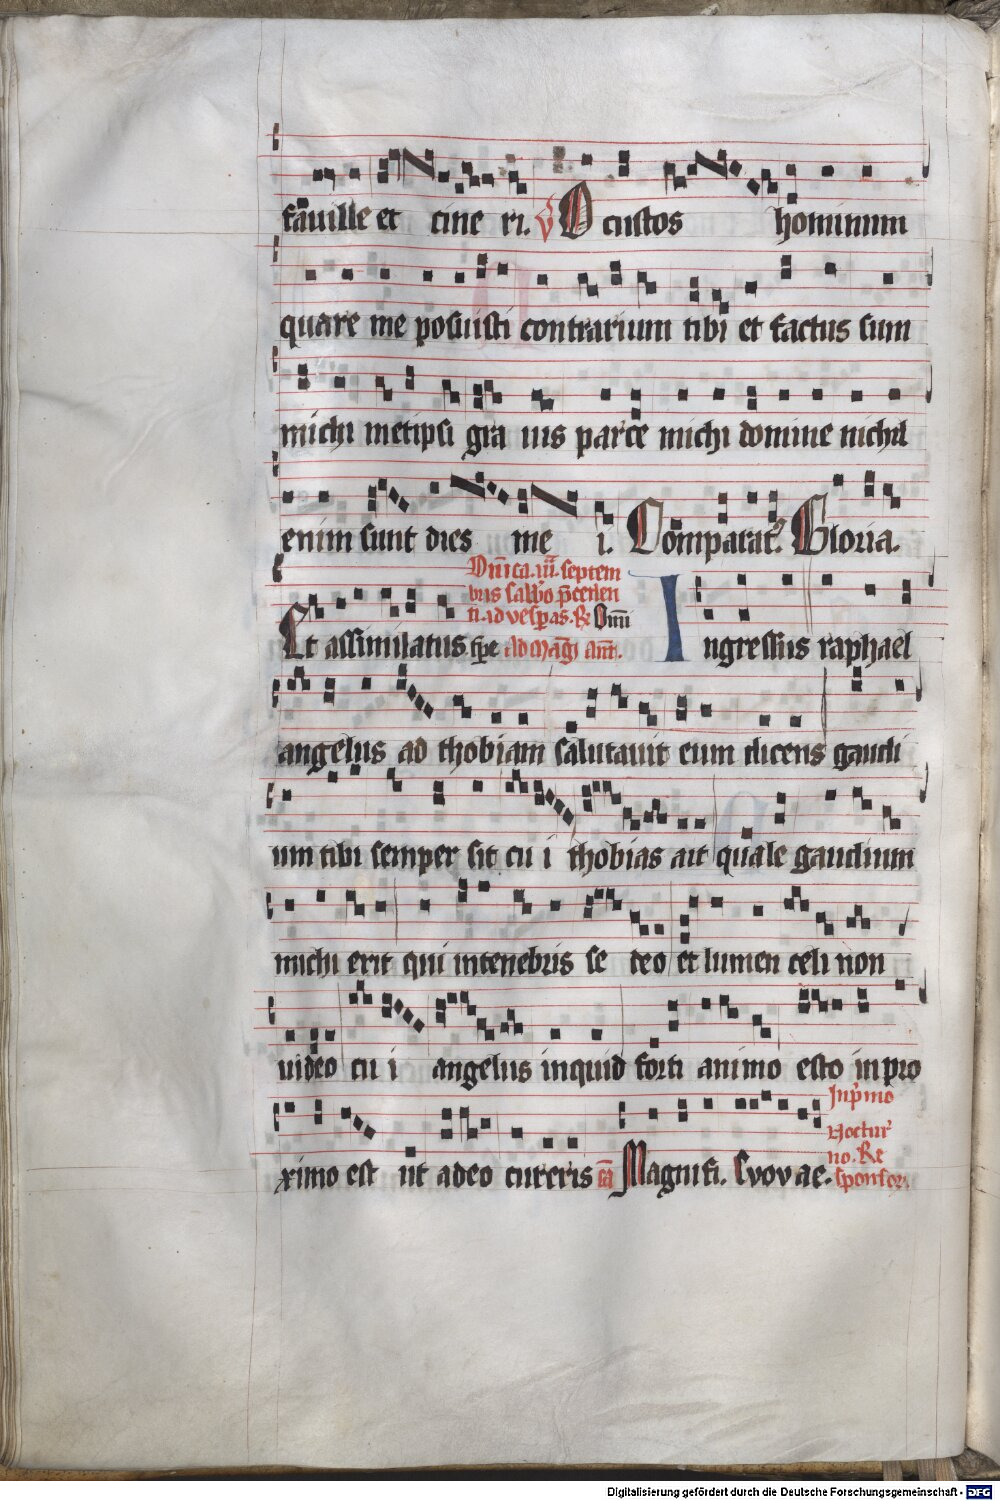 fauille et cine ri. V O custos hominum
quare me posuisti contrarium tibi et factus sum
michi metipsi gra uis parce michi domine nichil
enim sunt dies me i. Comparat9. Gloria.
Dnica. iii. septem
bris sabbo pceden
ti. ad vespas. R Omni
Et assimilatus. spe Ad magn ant. Ingressus raphael
angelus ad thobiam salutauit eum dicens gaudi
um tibi semper sit cu i thobias ait quale gaudium
michi erit qui in tenebris se deo et lumen celi non
uideo cu i angelus inquid forti animo esto in pro
ximo est ut a deo cureris Magnifi. Evovae.
In pmo
Noctur
no. Re
sponsor.
Digitalisierung gefördert durch die Deutsche Forschungsgemeinschaft - DFG